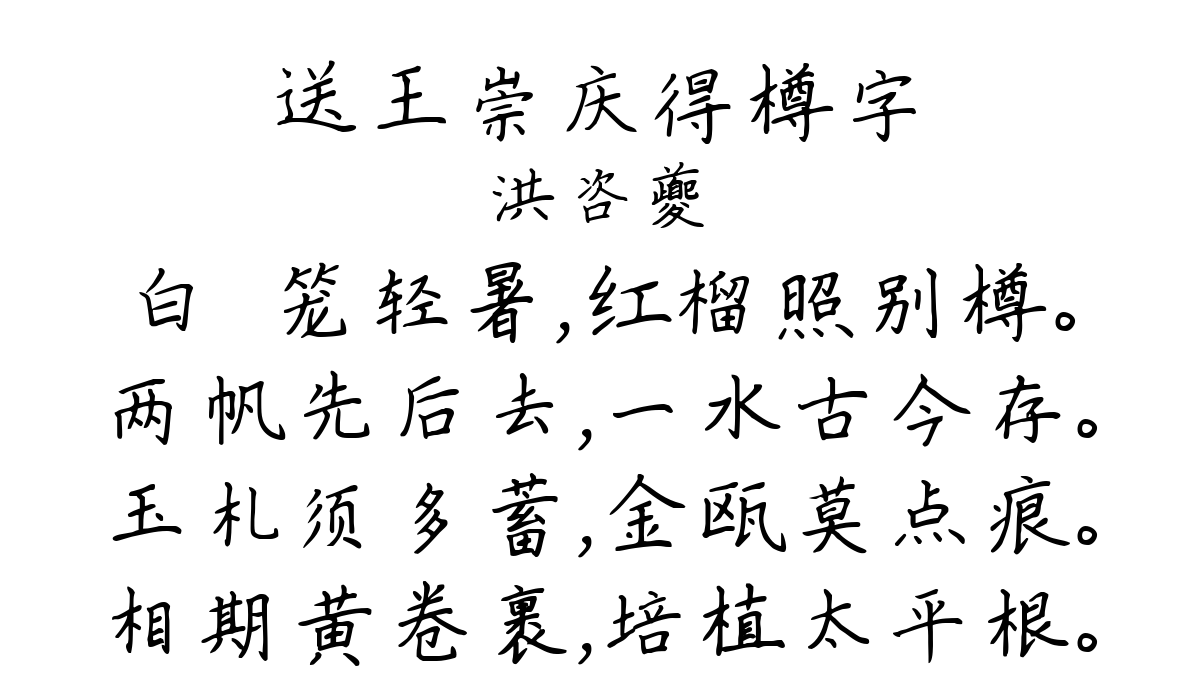 送王崇庆得樽字
洪咨夔
白 笼轻暑,红榴照别樽。
两帆先后去,一水古今存。
玉札须多蓄,金瓯莫点痕。
相期黄卷裹,培植太平根。